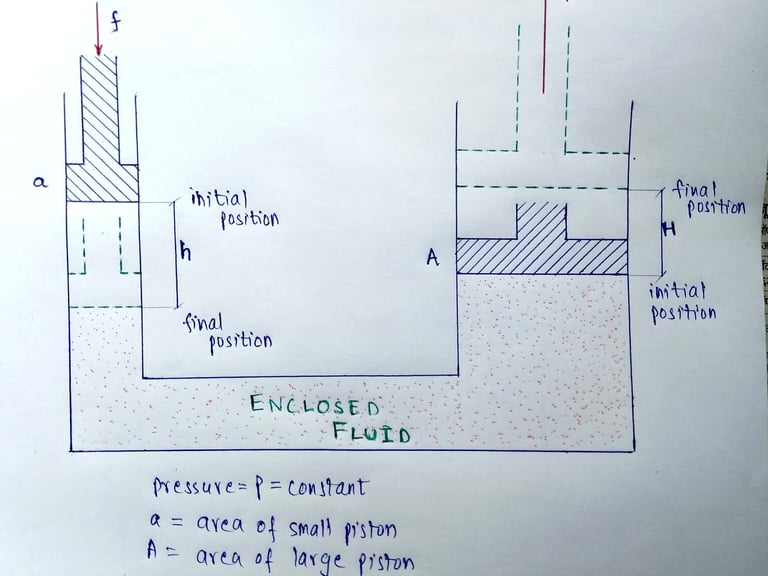 f
a
initial
position
h
final
position
A
final
position
H
initial
position
ENCLOSED
FLUID
pressure = P = constant
a = area of small piston
A = area of large piston